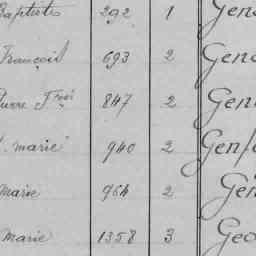 Baptiste 292 1 Gend
François 693 2 Gend
Pierre Frois 847 2 Gen
marie 940 2 Genf
Marie 964 2 Gen
Marie 1358 3 Geo